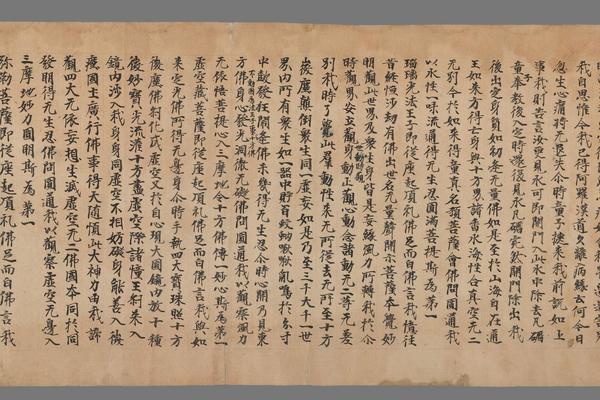 我自思惟今我已得阿羅漢道久離病緣云何今日
忽生心痛將无退失尒時童子捷來我前說如上
事我則告言汝更見水可即開門入此水中除去瓦礫
童子奉教後入定時還復見水瓦礫宛然開門除出我
後出定身質如初逢无量佛如是至於山海自在通
王如來方得亡身與十方界諸香水海性合真空无二
无別今於如來得童真名預菩薩會佛問圓通我
以水性一味流通得无生忍圓滿菩提斯為第一
瑠璃光法王子即從座起頂礼佛足而白佛言我憶往
昔經恒沙劫有佛出世名无量聲開示菩薩本覺妙
明觀此世界及衆生身皆是妄緣風力所轉我於尒
時觀界安立觀世動時觀身動止觀心動念諸動无二等无差
別我時了覺此羣動性來无所從去无所至十方
微塵顛倒衆生同一虛妄如是乃至三千大千一世
界內所有衆生如一器中貯百蚊蚋啾啾亂鳴於分寸
中鼓發狂鬧逢佛未幾得无生忍尒時心開乃見東
方不動佛國為法王子事十方佛身心發光洞徹无礙佛問圓通我以觀察風力
无依悟菩提心入三摩地合十方佛傳一妙心斯為第一
虛空藏菩薩即從座起頂礼佛足而白佛言我與如
來定光佛所得无邊身尒時手執四大寶珠照十方
微塵佛刹化成虛空又於自心現大圓鏡內放十種
微妙寶光流灌十方盡虛空際諸幢王刹來入
鏡內涉入我身身同虛空不相妨礙身能善入微
塵國土廣行佛事得大隨順此大神力由我諦
觀四大无依妄想生滅虛空无二佛國本同於同
發明得无生忍佛問圓通我以觀察虛空无邊入
三摩地妙力圓明斯為第一
弥勒菩薩即從座起頂礼佛足而白佛言我